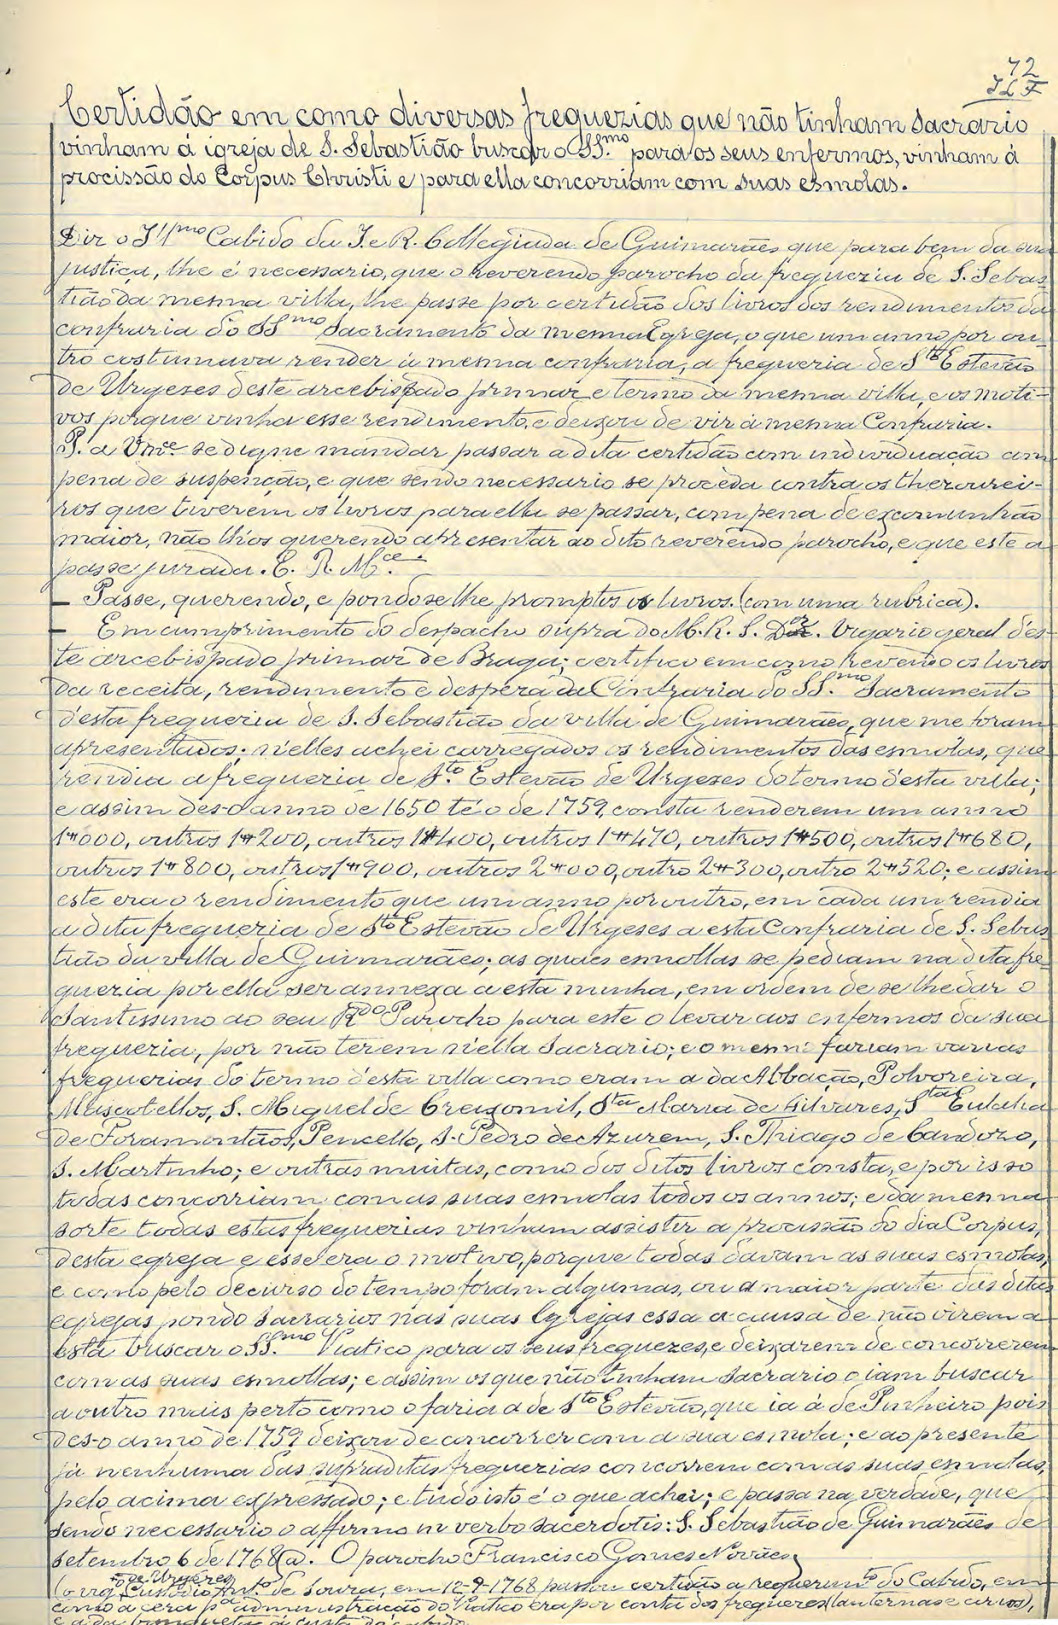 72
Certidão em como diversas freguezias que não tinham Sacrario
vinham á igreja de S. Sebastião buscar o SS.mo para os seus enfermos, vinham á
procissão do Corpus Christi e para ella concorriam com suas esmolas.
Diz o Illmo Cabido da I. e R. Collegiada de Guimarães que para bem da sua
justiça, lhe é necessario, que o reverendo parocho da freguezia de S. Sebas
tião da mesma villa, lhe passe por certidão dos livros dos rendimentos da
confraria do SSmo Sacramento da mesma Egreja, o que um anno por ou-
tro costumava render á mesma confraria, a freguezia de Sto Estevão
de Urgezes deste arcebispado primaz e termo da mesma villa, e os moti-
vos porque vinha esse rendimento, e deixou de vir á mesma Confraria.
P. a Vmce se digne mandar passar a dita certidão com individuação com
pena de suspenção, e que sendo necessario se proceda contra os thezourei-
ros que tiverem os livros para ella se passar, com pena de excomunhão
maior, não lh'os querendo apresentar ao dito reverendo parocho, e que este a
passe jurada. E. R. Mce.
— Passe, querendo, e pondo-se lhe promptos os livros. (com uma rubrica).
— Em cumprimento do despacho supra do M. R. S. Dr. Vigario geral d'es-
te arcebispado primaz de Braga; certifico em como revendo os livros
da receita, rendimento e despeza da Confraria do SS.mo Sacramento
d'esta freguezia de S. Sebastião da villa de Guimarães, que me foram
apresentados; n'elles achei carregados os rendimentos das esmolas, que
rendia a freguezia de Sto. Estevão de Urgezes do termo d'esta villa;
e assim des-o anno de 1650 té o de 1759, consta renderem um anno
1#000, outros 1#200, outros 1#400, outros 1#470, outros 1#500, outros 1#680,
outros 1#800, outros 1#900, outros 2#000, outro 2#300, outro 2#520; e assim
este era o rendimento que um anno por outro, em cada um rendia
a dita freguezia de Sto Estevão de Urgeses a esta Confraria de S. Sebas
tião da villa de Guimarães; as quaes esmollas se pediam na dita fre-
guezia por ella ser annexa a esta minha, em ordem de se lhe dar o
Santissimo ao seu Rdo Parocho para este o levar aos enfermos da sua
freguezia, por não terem n'ella Sacrario; e o mesmo faziam varias
freguezias do termo d'esta villa como eram a da Abbação, Polvoreira,
Mascotellos, S. Miguel de Creixomil, Sta Maria de Silvares, Sta Eulalia
de Foramontãos, Pencello, S. Pedro de Azurem, S. Thiago de Candozo,
S. Martinho; e outras muitas, como dos ditos livros consta, e por isso
todas concorriam com as suas esmolas todos os annos; e da mesma
sorte todas estas freguezias vinham assistir a procissão do dia Corpus,
desta egreja e esse era o motivo, porque todas davam as suas esmolas;
e como pelo decurso do tempo foram algumas, ou a maior parte das ditas
egrejas pondo Sacrarios nas suas Egrejas essa a causa de não virem a
esta buscar o SS.mo Viatico para os seus freguezes, e deixarem de concorrerem
com as suas esmollas; e assim os que não tinham Sacrario o iam buscar
a outro mais perto como o faria a de Sto Estevão, que ia á de Pinheiro pois
des-o anno de 1759 deixou de concorrer com a sua esmola; e ao presente
já nenhuma das supraditas freguezias concorrem com as suas esmolas,
pelo acima expressado; e tudo isto é o que achei; e passa na verdade, que
sendo necessario o affirmo in verbo sacerdotis: S. Sebastião de Guimarães de
Setembro 6 de 1768 (a). O parocho Francisco Gomes Novaes
to de Urgezes
(o vig. Custodio Anto. de Souza, em 12-9-1768 passou certidão a requerimto do Cabido, em
como a cera pa administração do Viatico era por conta dos freguezes (lanternas e cirios),